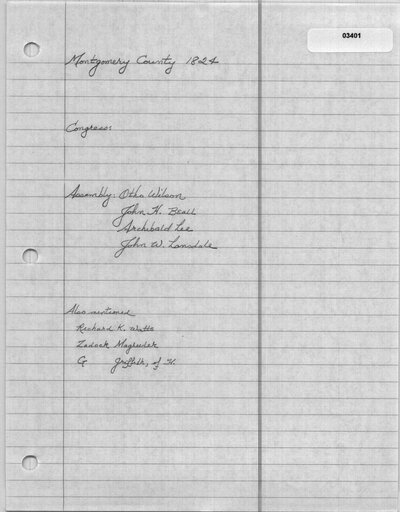 03401
Montgomery County 1824
Congress:
Assembly: Otho Wilson
John H. Beall
Archibald Lee
John W. Lansdale
Also mentioned
Richard K. Watts
Zadock Magruder
G Griffith, of H.